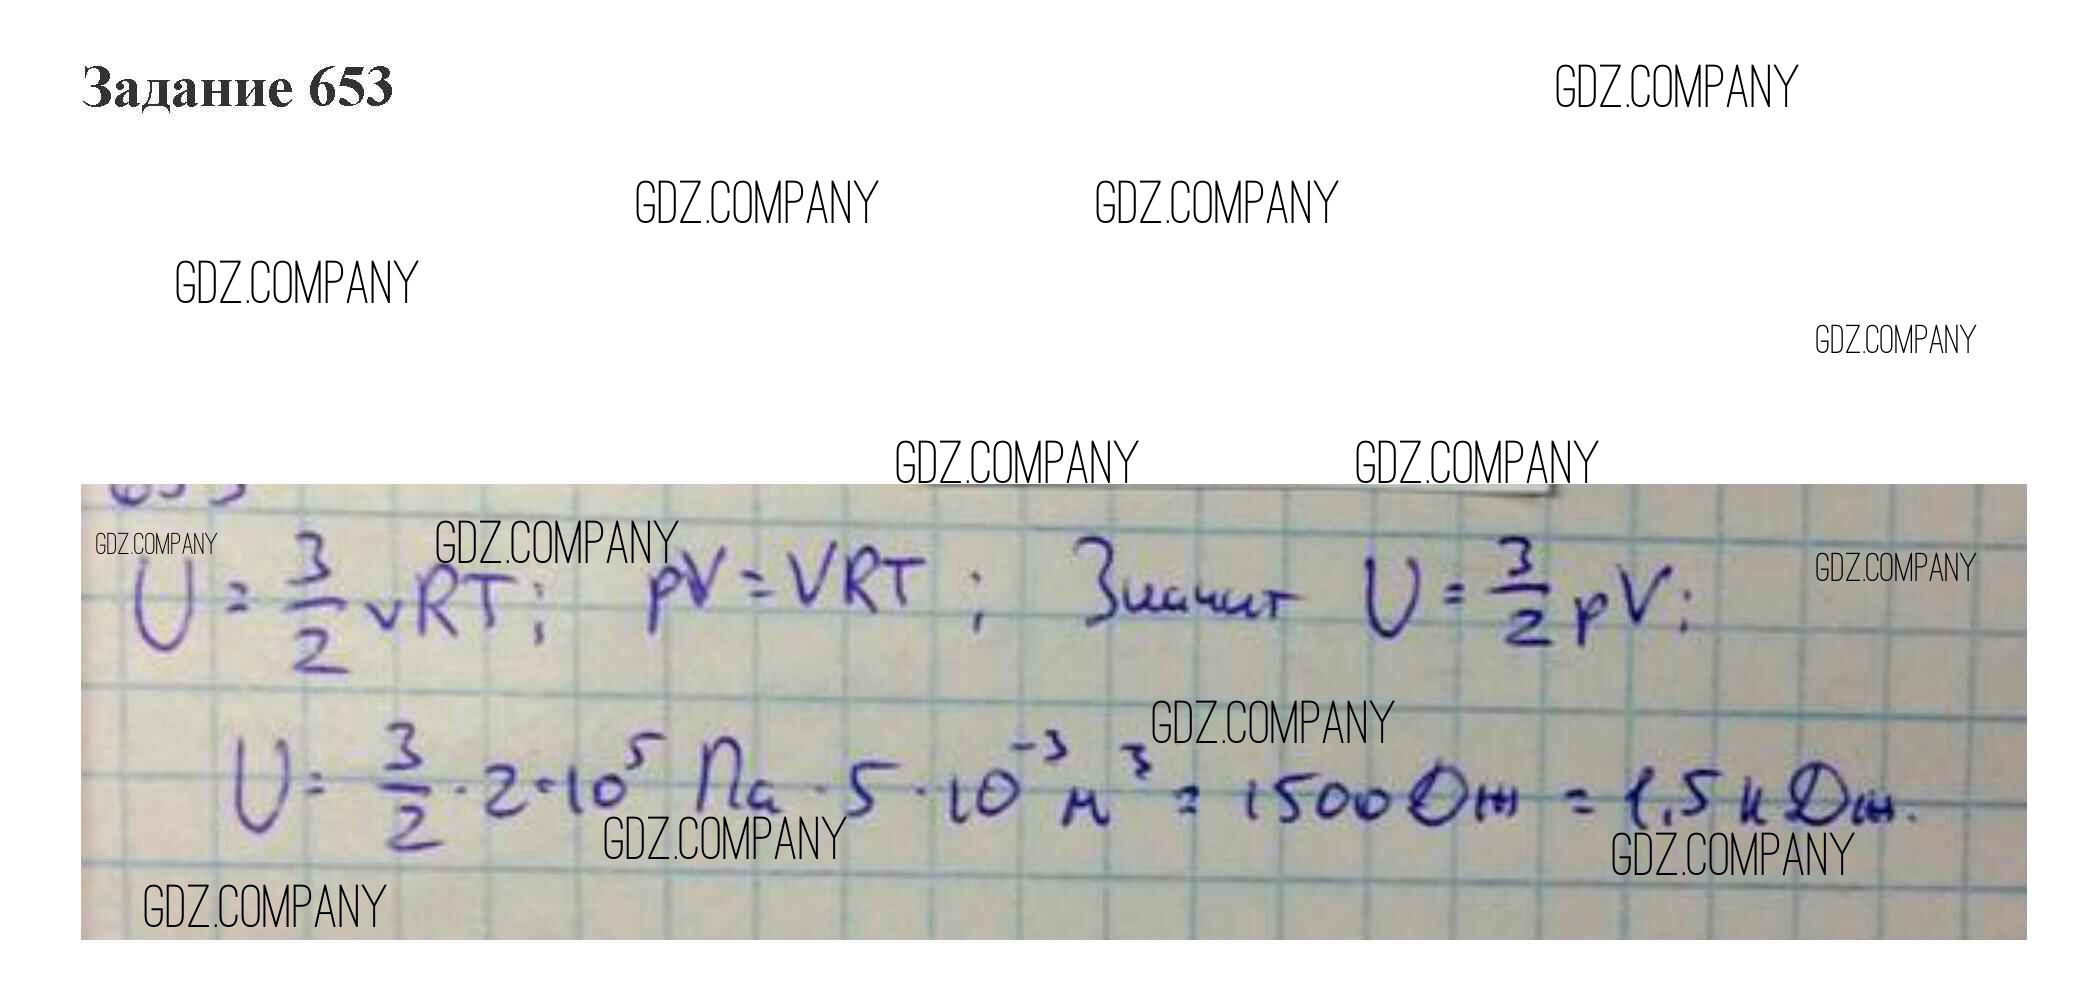 Задание 653
GDZ.COMPANY
GDZ.COMPANY GDZ.COMPANY
GDZ.COMPANY
GDZ.COMPANY
GDZ.COMPANY GDZ.COMPANY
653
GDZ.COMPANY GDZ.COMPANY GDZ.COMPANY
U = 3/2 νRT; pV = νRT; Значит U = 3/2 pV;
GDZ.COMPANY
U = 3/2 · 2 · 10⁵ Па · 5 · 10⁻³ м³ = 1500 Дж = 1,5 кДж.
GDZ.COMPANY GDZ.COMPANY
GDZ.COMPANY